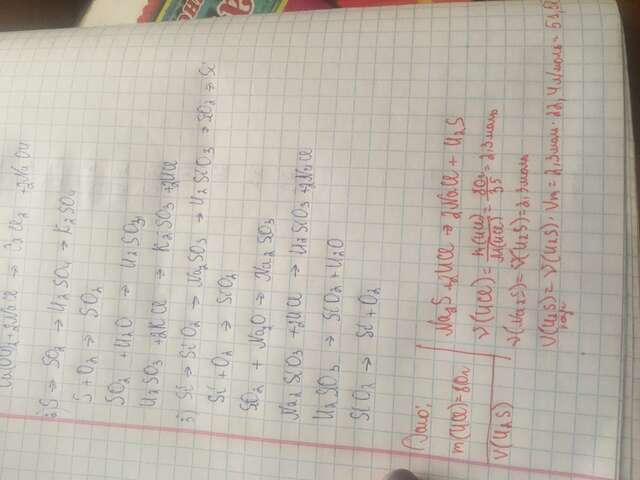 +2NaCl → CaCl2 + 2NaOH
2) S → SO2 → H2SO4 → K2SO4
S + O2 → SO2
SO2 + H2O → H2SO3
H2SO3 + 2KCl → K2SO3 + 2HCl
3) Si → SiO2 → Na2SO3 → H2SiO3 → SO2 → Si
Si + O2 → SiO2
SO2 + Na2O → Na2SO3
Na2SiO3 + 2HCl → H2SiO3 + 2NaCl
H2SO3 → SiO2 + H2O
SiO2 → Si + O2
Дано:
m(HCl) = 80г
V(H2S)
Na2S + 2HCl → 2NaCl + H2S
ν(HCl) = m(HCl)/M(HCl) = 80/35 = 2,3моль
ν(Na2S) = ν(H2S) = 2,3моль
V(H2S) = ν(H2S) · Vm = 2,3моль · 22,4л/моль = 51,5